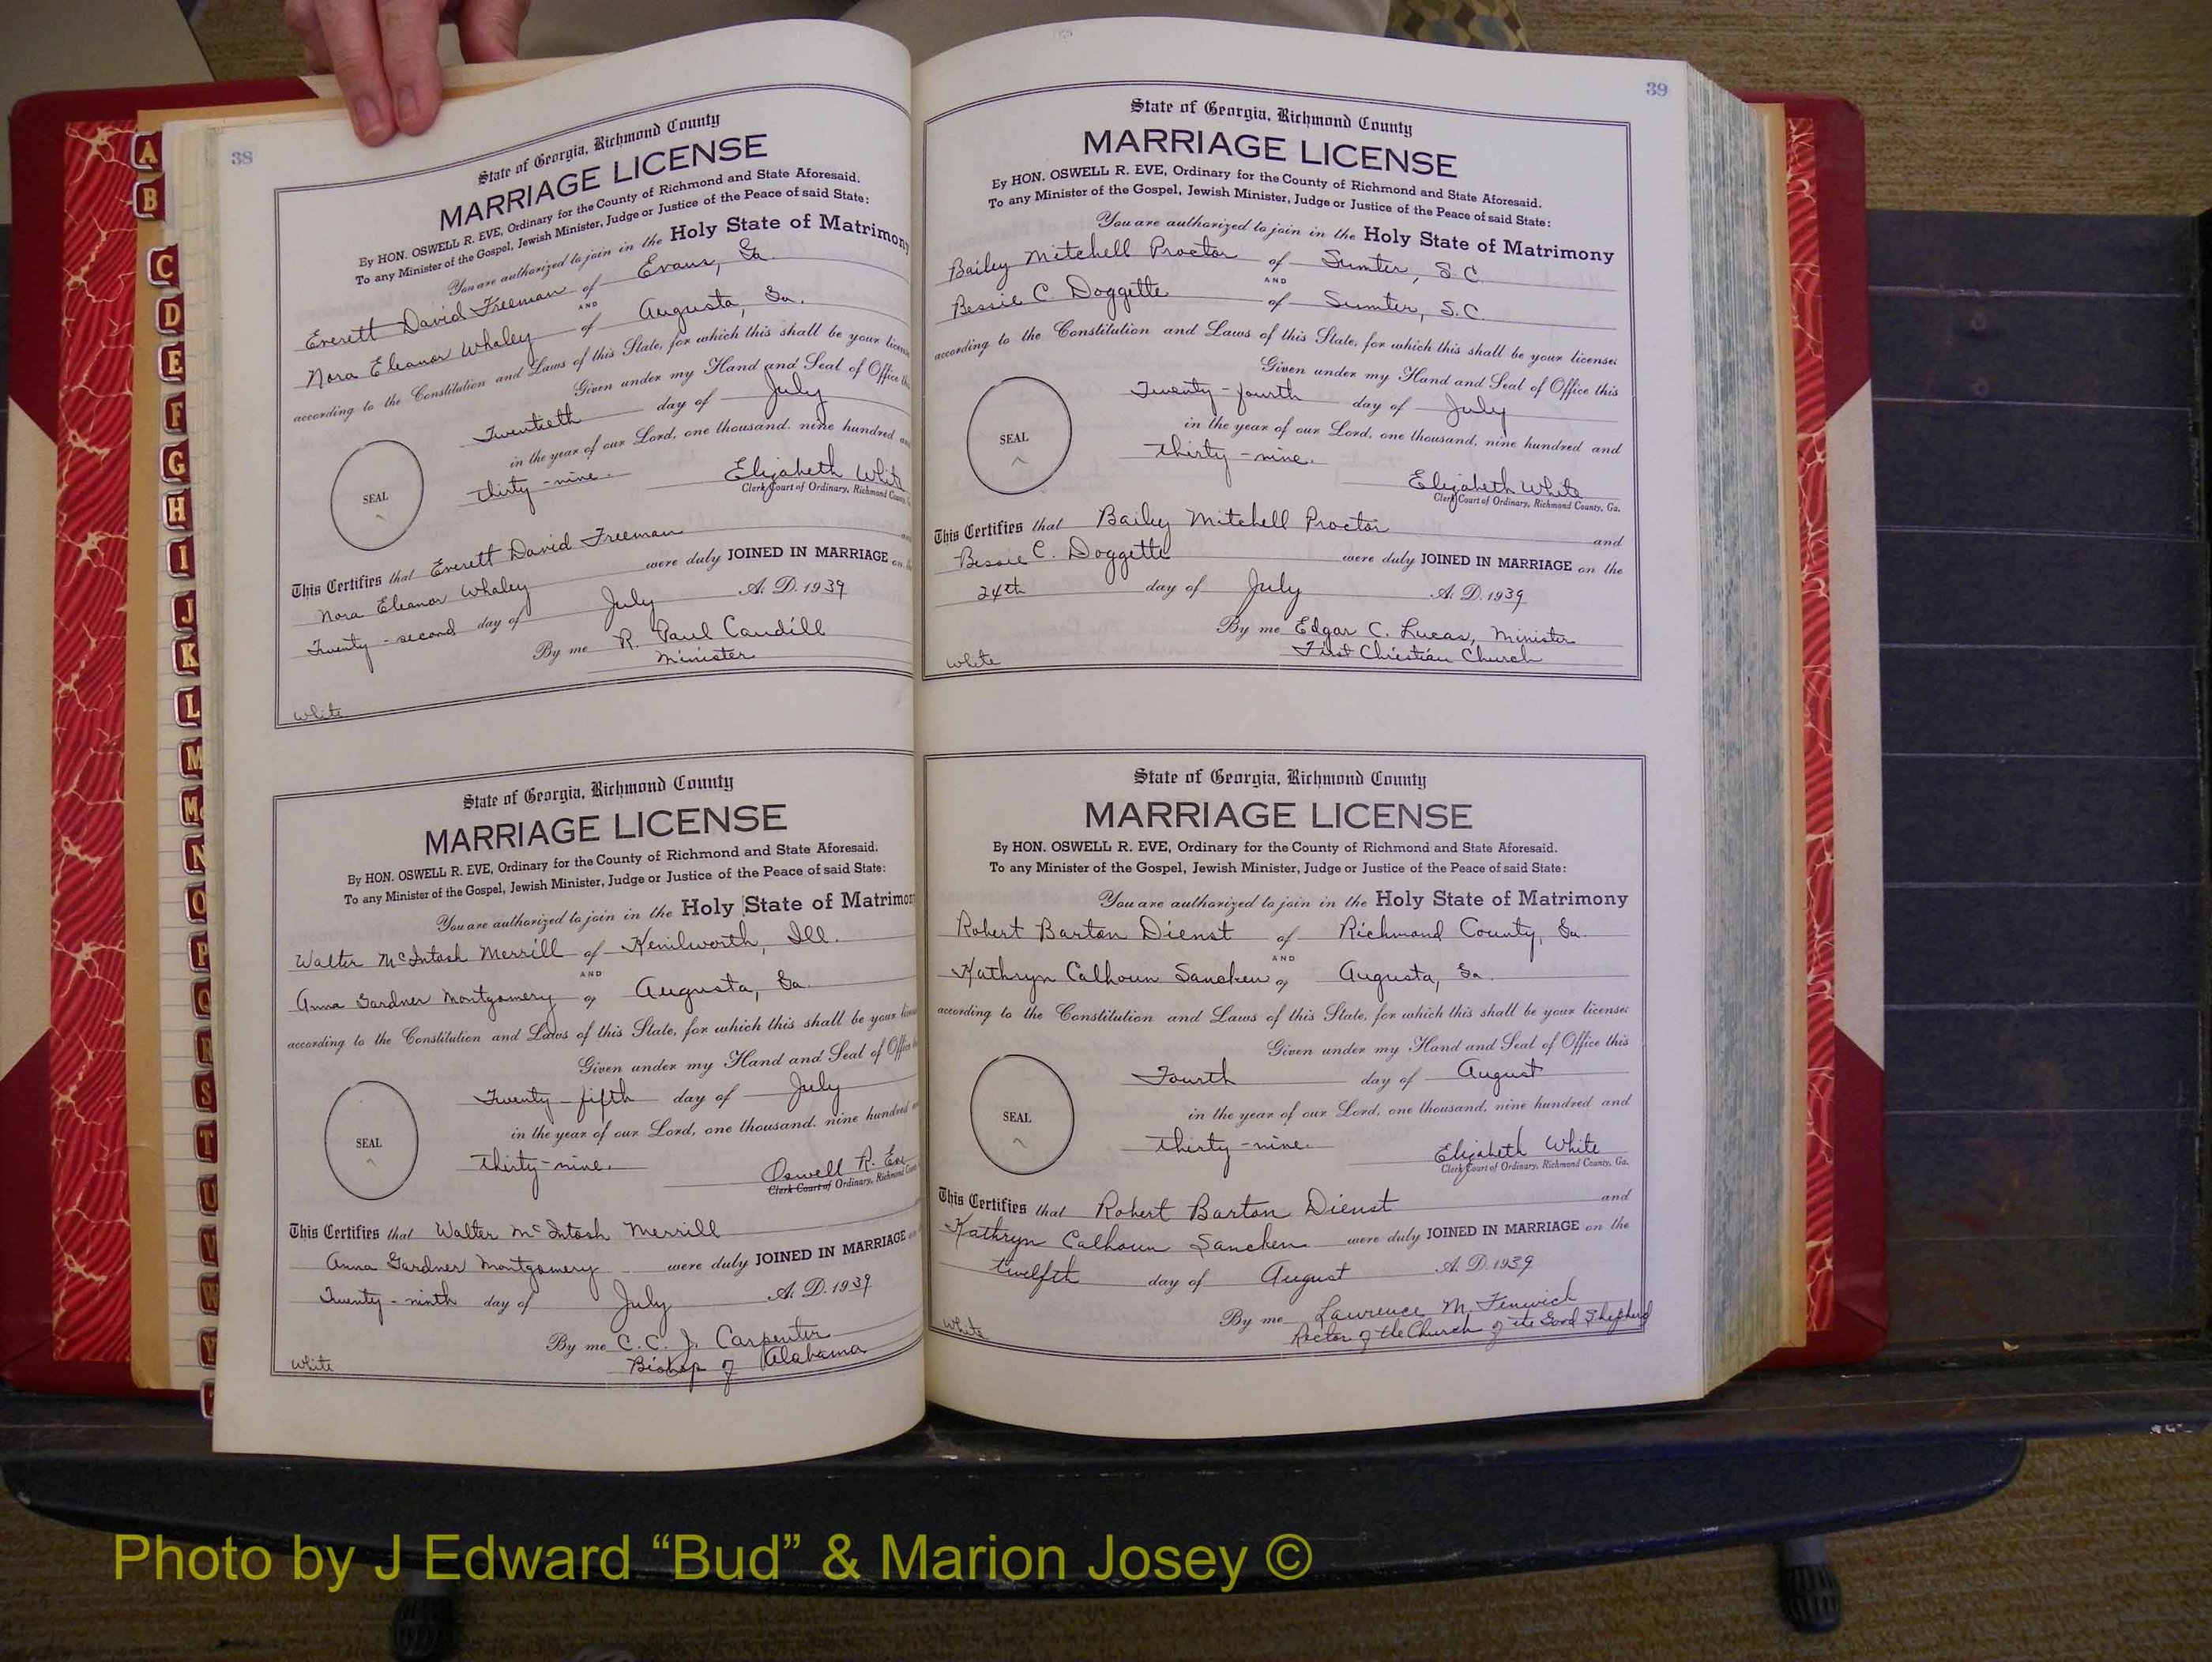 38
State of Georgia, Richmond County
MARRIAGE LICENSE
By HON. OSWELL R. EVE, Ordinary for the County of Richmond and State Aforesaid.
To any Minister of the Gospel, Jewish Minister, Judge or Justice of the Peace of said State:
You are authorized to join in the Holy State of Matrimony
Everett David Freeman of Evans, Ga.
AND
Nora Eleanor Whaley of Augusta, Ga.
according to the Constitution and Laws of this State, for which this shall be your license
Given under my Hand and Seal of Office
Twentieth day of July
in the year of our Lord, one thousand, nine hundred
thirty-nine.
Elizabeth White
Clerk Court of Ordinary, Richmond
SEAL
This Certifies that Everett David Freeman
Nora Eleanor Whaley were duly JOINED IN MARRIAGE on
Twenty-second day of July A. D. 1939
By me R. Paul Caudill
Minister
White
State of Georgia, Richmond County
MARRIAGE LICENSE
By HON. OSWELL R. EVE, Ordinary for the County of Richmond and State Aforesaid.
To any Minister of the Gospel, Jewish Minister, Judge or Justice of the Peace of said State:
You are authorized to join in the Holy State of Matrimon
Walter McIntosh Merrill of Kenilworth, Ill.
AND
Anna Gardner Montgomery of Augusta, Ga.
according to the Constitution and Laws of this State, for which this shall be your
Given under my Hand and Seal of Office
Twenty-fifth day of July
in the year of our Lord, one thousand, nine hundred
thirty-nine.
Oswell R. Eve
Clerk Court of Ordinary, Richmond
SEAL
This Certifies that Walter McIntosh Merrill
Anna Gardner Montgomery were duly JOINED IN MARRIAGE
Twenty-ninth day of July A. D. 1939
By me C. C. J. Carpenter
Bishop of Alabama
White
39
State of Georgia, Richmond County
MARRIAGE LICENSE
By HON. OSWELL R. EVE, Ordinary for the County of Richmond and State Aforesaid.
To any Minister of the Gospel, Jewish Minister, Judge or Justice of the Peace of said State:
You are authorized to join in the Holy State of Matrimony
Bailey Mitchell Proctor of Sumter, S.C.
AND
Bessie C. Doggette of Sumter, S.C.
according to the Constitution and Laws of this State, for which this shall be your license:
Given under my Hand and Seal of Office this
Twenty-fourth day of July
in the year of our Lord, one thousand, nine hundred and
thirty-nine.
Elizabeth White
Clerk Court of Ordinary, Richmond County, Ga.
SEAL
This Certifies that Bailey Mitchell Proctor and
Bessie C. Doggette were duly JOINED IN MARRIAGE on the
24th day of July A. D. 1939
By me Edgar C. Lucas, Minister
First Christian Church
White
State of Georgia, Richmond County
MARRIAGE LICENSE
By HON. OSWELL R. EVE, Ordinary for the County of Richmond and State Aforesaid.
To any Minister of the Gospel, Jewish Minister, Judge or Justice of the Peace of said State:
You are authorized to join in the Holy State of Matrimony
Robert Barton Dienst of Richmond County, Ga.
AND
Kathryn Calhoun Sancken of Augusta, Ga.
according to the Constitution and Laws of this State, for which this shall be your license:
Given under my Hand and Seal of Office this
Fourth day of August
in the year of our Lord, one thousand, nine hundred and
thirty-nine.
Elizabeth White
Clerk Court of Ordinary, Richmond County, Ga.
SEAL
This Certifies that Robert Barton Dienst and
Kathryn Calhoun Sancken were duly JOINED IN MARRIAGE on the
twelfth day of August A. D. 1939
By me Lawrence M. Fenwick
Rector of the Church of the Good Shepherd
White
A
B
C
D
E
F
G
H
I
J
K
L
M
Mc
N
O
P
Q
R
S
T
U
V
W
Y
Photo by J Edward “Bud” & Marion Josey ©